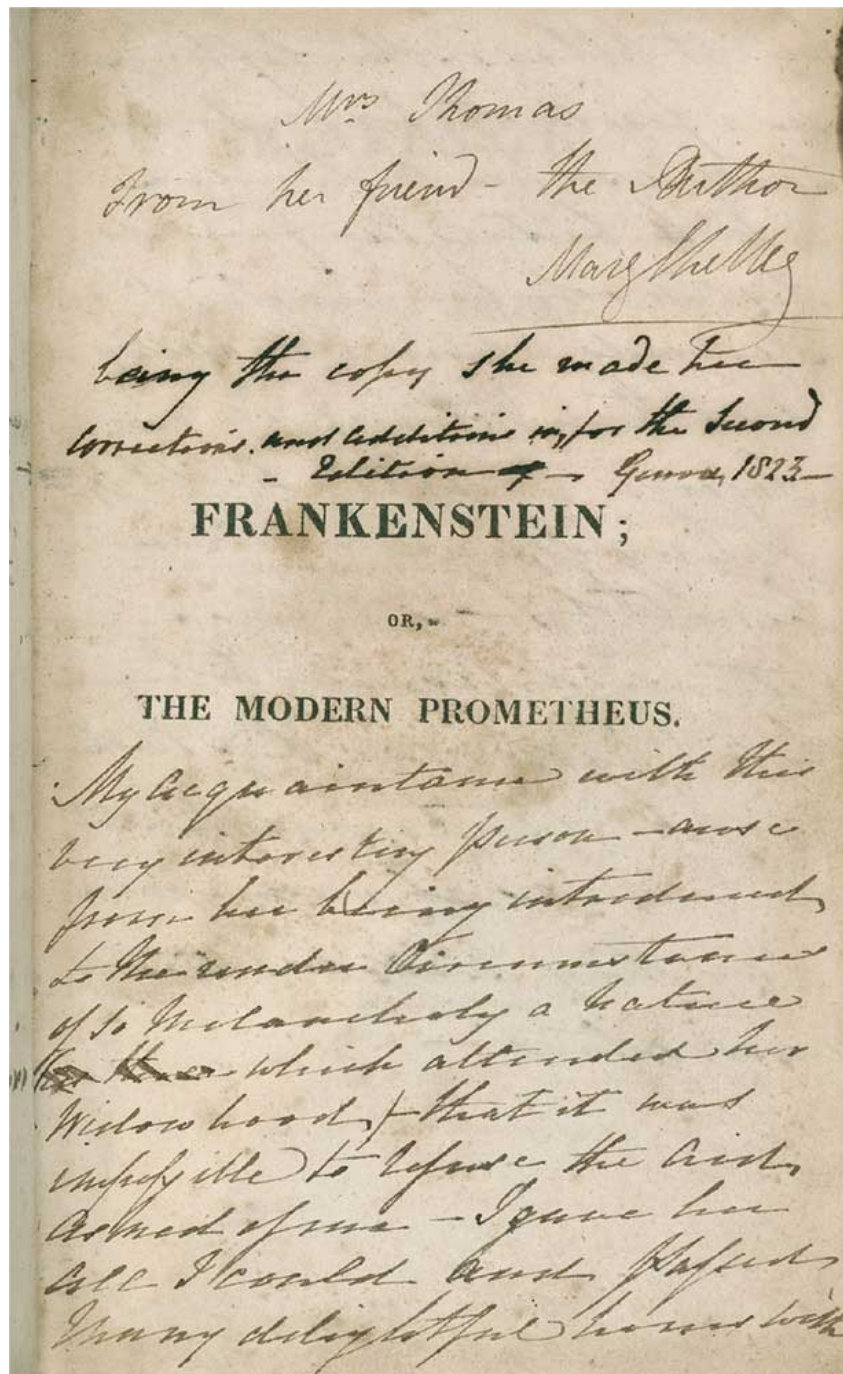 Mrs Thomas
From her friend - the Author
Mary Shelley
being the copy she made her
corrections and additions in, for the Second
- Edition - Genoa, 1823 -
FRANKENSTEIN;
OR,
THE MODERN PROMETHEUS.
My acquaintance with this
very interesting person - arose
from her being introduced
to me under Circumstances
of so Melancholy a Nature
which attended her
Widowhood) - that it was
impossible to refuse the aid,
asked of me - I gave her
all I could and passed
Many delightful hours with